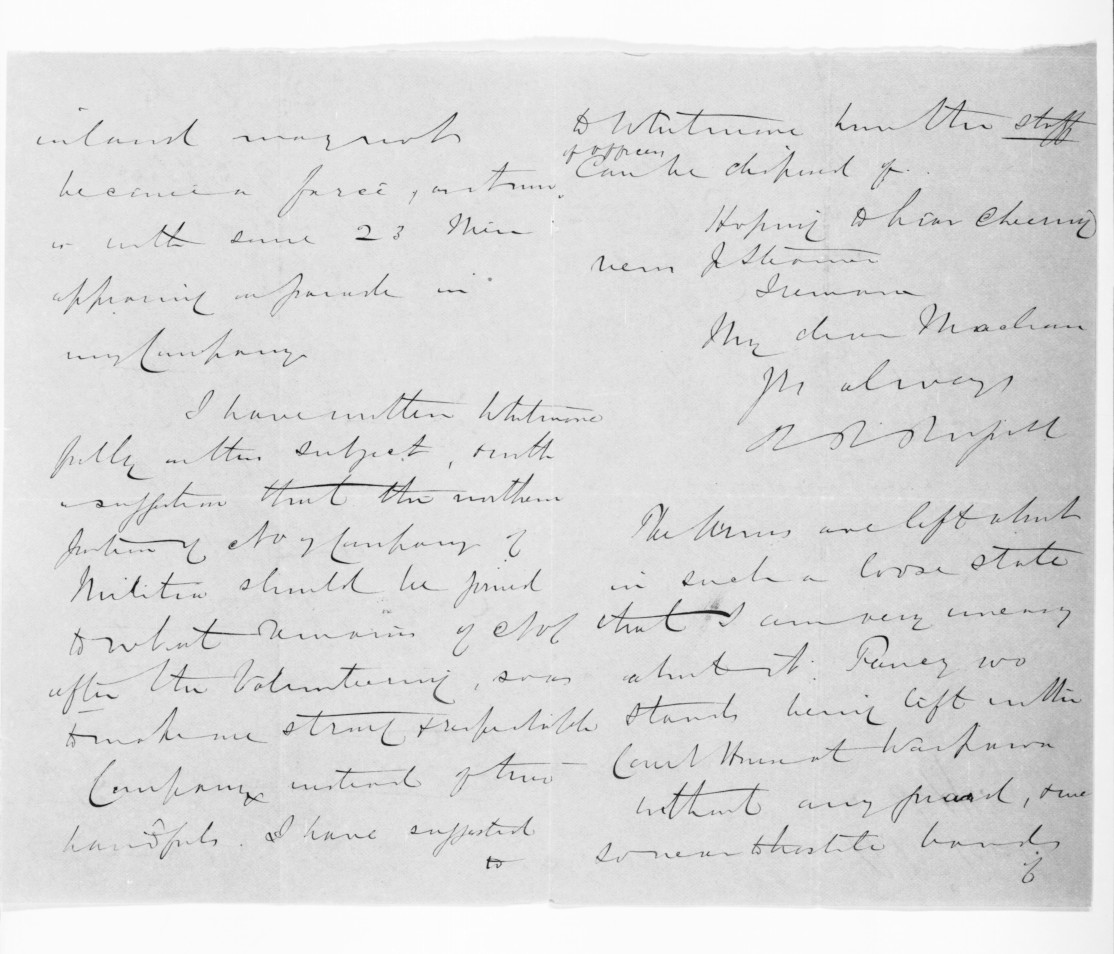 inland may not
become a farce, as it now
is with some 23 Men
appearing on parade in
my Company
I have written Whitmore
fully on this subject, & with
a suggestion that the northern
portion of No 7 Company of
Militia should be joined
to what remains of No 6
after the Volunteering, so as
to make one strong & respectable
Company instead of two
handfuls. I have suggested
to
to Whitmore how the staff
of officers
can be disposed of.
Hoping to hear cheering
news Steamer
I remain
My dear Maclean
Yrs always
The Arms are left about
in such a loose state
that I am very uneasy
about it. Fancy 20
stands being left in the
Court House at Waipawa
without any guard, & one
so near to hostile bands